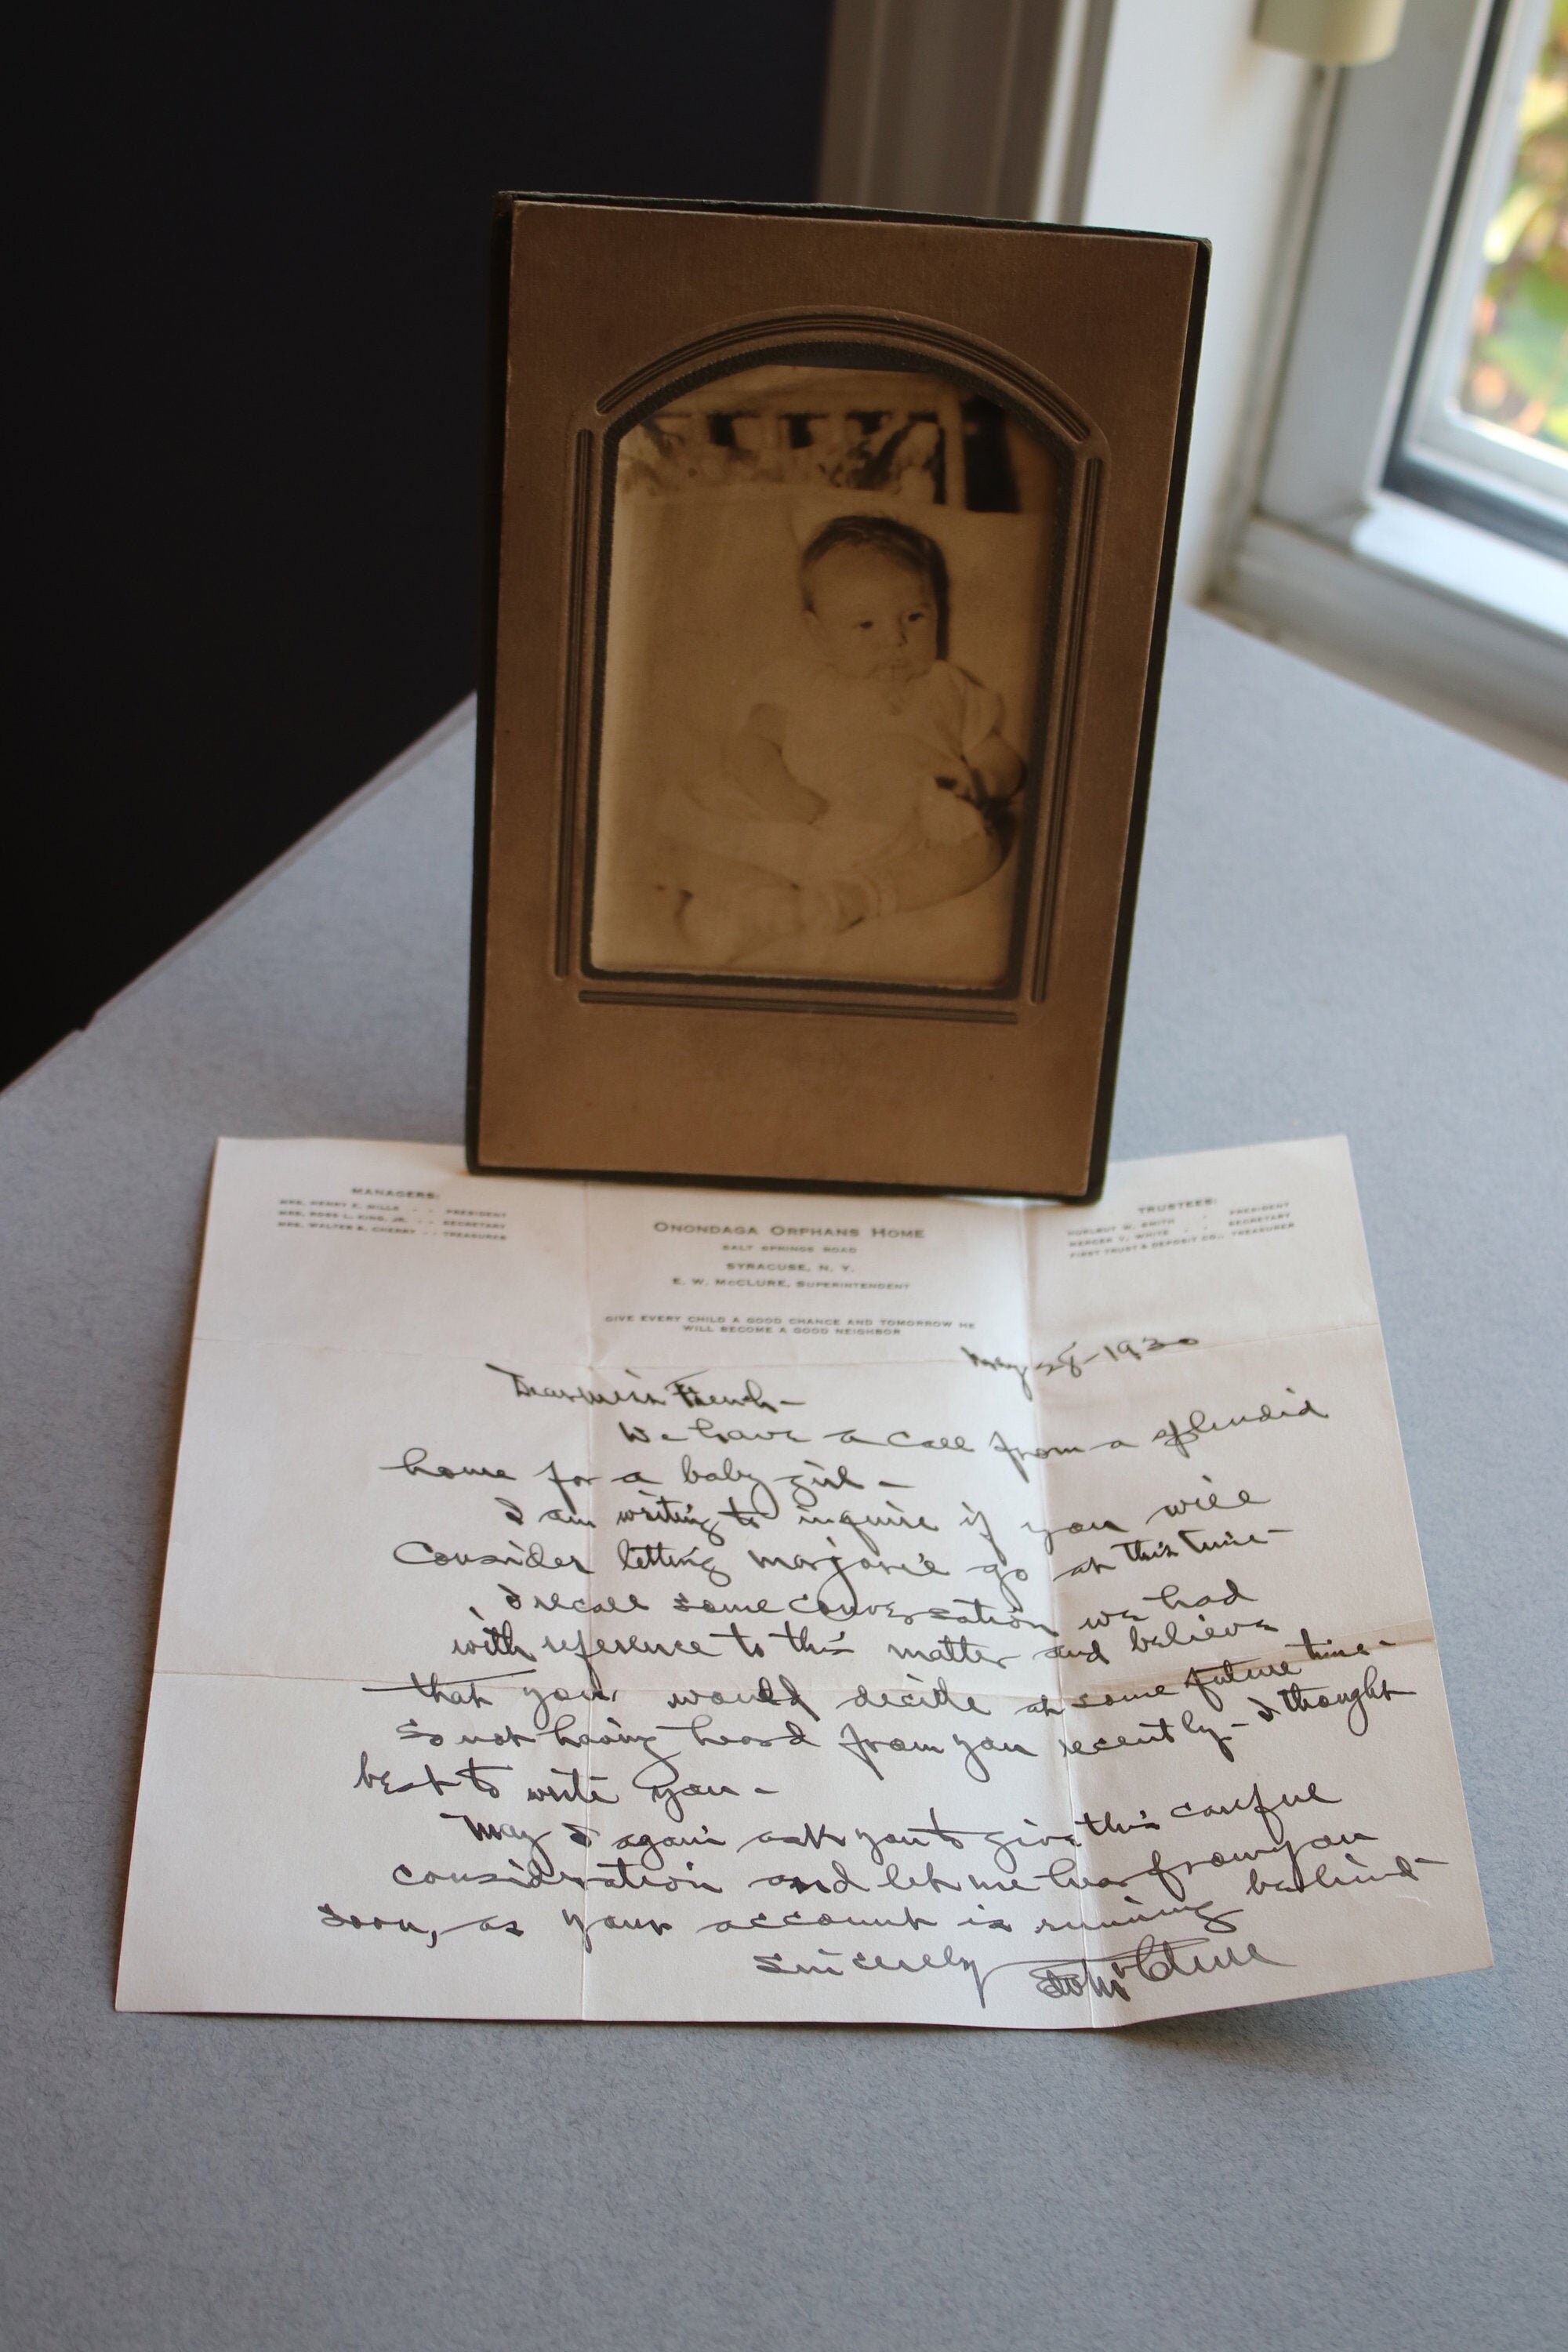 MANAGERS:
MRS. HENRY E. MILLS - - PRESIDENT
MRS. ROSS L. KING, JR. - - SECRETARY
MRS. WALTER B. CHERRY - - TREASURER
ONONDAGA ORPHANS HOME
SALT SPRINGS ROAD
SYRACUSE, N. Y.
E. W. McCLURE, SUPERINTENDENT
GIVE EVERY CHILD A GOOD CHANCE AND TOMORROW HE
WILL BECOME A GOOD NEIGHBOR
TRUSTEES:
HURLBUT W. SMITH - - PRESIDENT
MERCER V. WHITE - - SECRETARY
FIRST TRUST & DEPOSIT CO., TREASURER
May 28-1930
Dear Miss French-
We have a call from a splendid
home for a baby girl -
I am writing to inquire if you will
consider letting Marjorie go at this time-
I recall some conversation we had
with reference to this matter and believe
that you would decide at some future time-
So not having heard from you recently- I thought
best to write you -
May I again ask you to give this careful
consideration and let me hear from you
soon, as your account is running behind-
Sincerely EW McClure